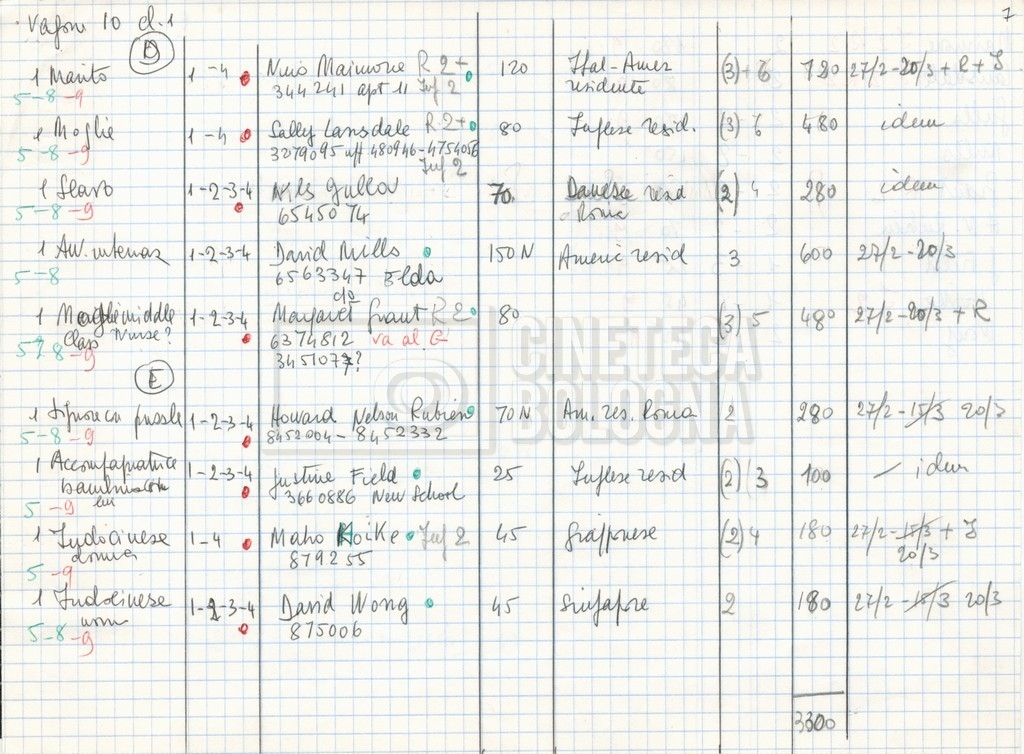 Vagone 10 cl. 1
7
D
1 Marito 1-4 Nino Maimone R 2+ 120 Ital-Amer (3)+6 27/2-20/3 + R + I
5-8-9 344241 apt 11 Inf 2 residente
1 Moglie 1-4 Sally Lansdale R 2+ 80 Inglese resid. (3) 6 480 idem
5-8-9 3279095 uff 480946-4754056
Inf 2
1 Slavo 1-2-3-4 Nils Gullov 70 Danese resid (2) 4 280 idem
5-8-9 6545074 Roma
1 Avv. 1-2-3-4 David Mills 150 N Americ resid 3 600 27/2-20/3
5-8 6563347 Elda
do
1 middle 1-2-3-4 Margaret Grant R 2 80 (3) 5 480 27/2-20/3 + R
Class Nurse? 6374812 va al G
8-9 345107?
CINETECA
BOLOGNA
E
1 Signore cn pussle 1-2-3-4 Howard Nelson Rubien 70 N Am. res. Roma 2 280 27/2-15/3 20/3
5-8-9 8452004-8452332
1 Accompagnatrice 1-2-3-4 Justine Field 25 Inglese resid (2)/3 100 idem
3660886 New School
5-9
1 Indocinese 1-4 Maho Koike Inf 2 45 Giapponese (2) 4 180 27/2-15/3 + I
donna 879255 20/3
5-9
1 Indocinese 1-2-3-4 David Wong 45 Singapore 2 180 27/2-15/3 20/3
uomo 875006
5-8-9
3300